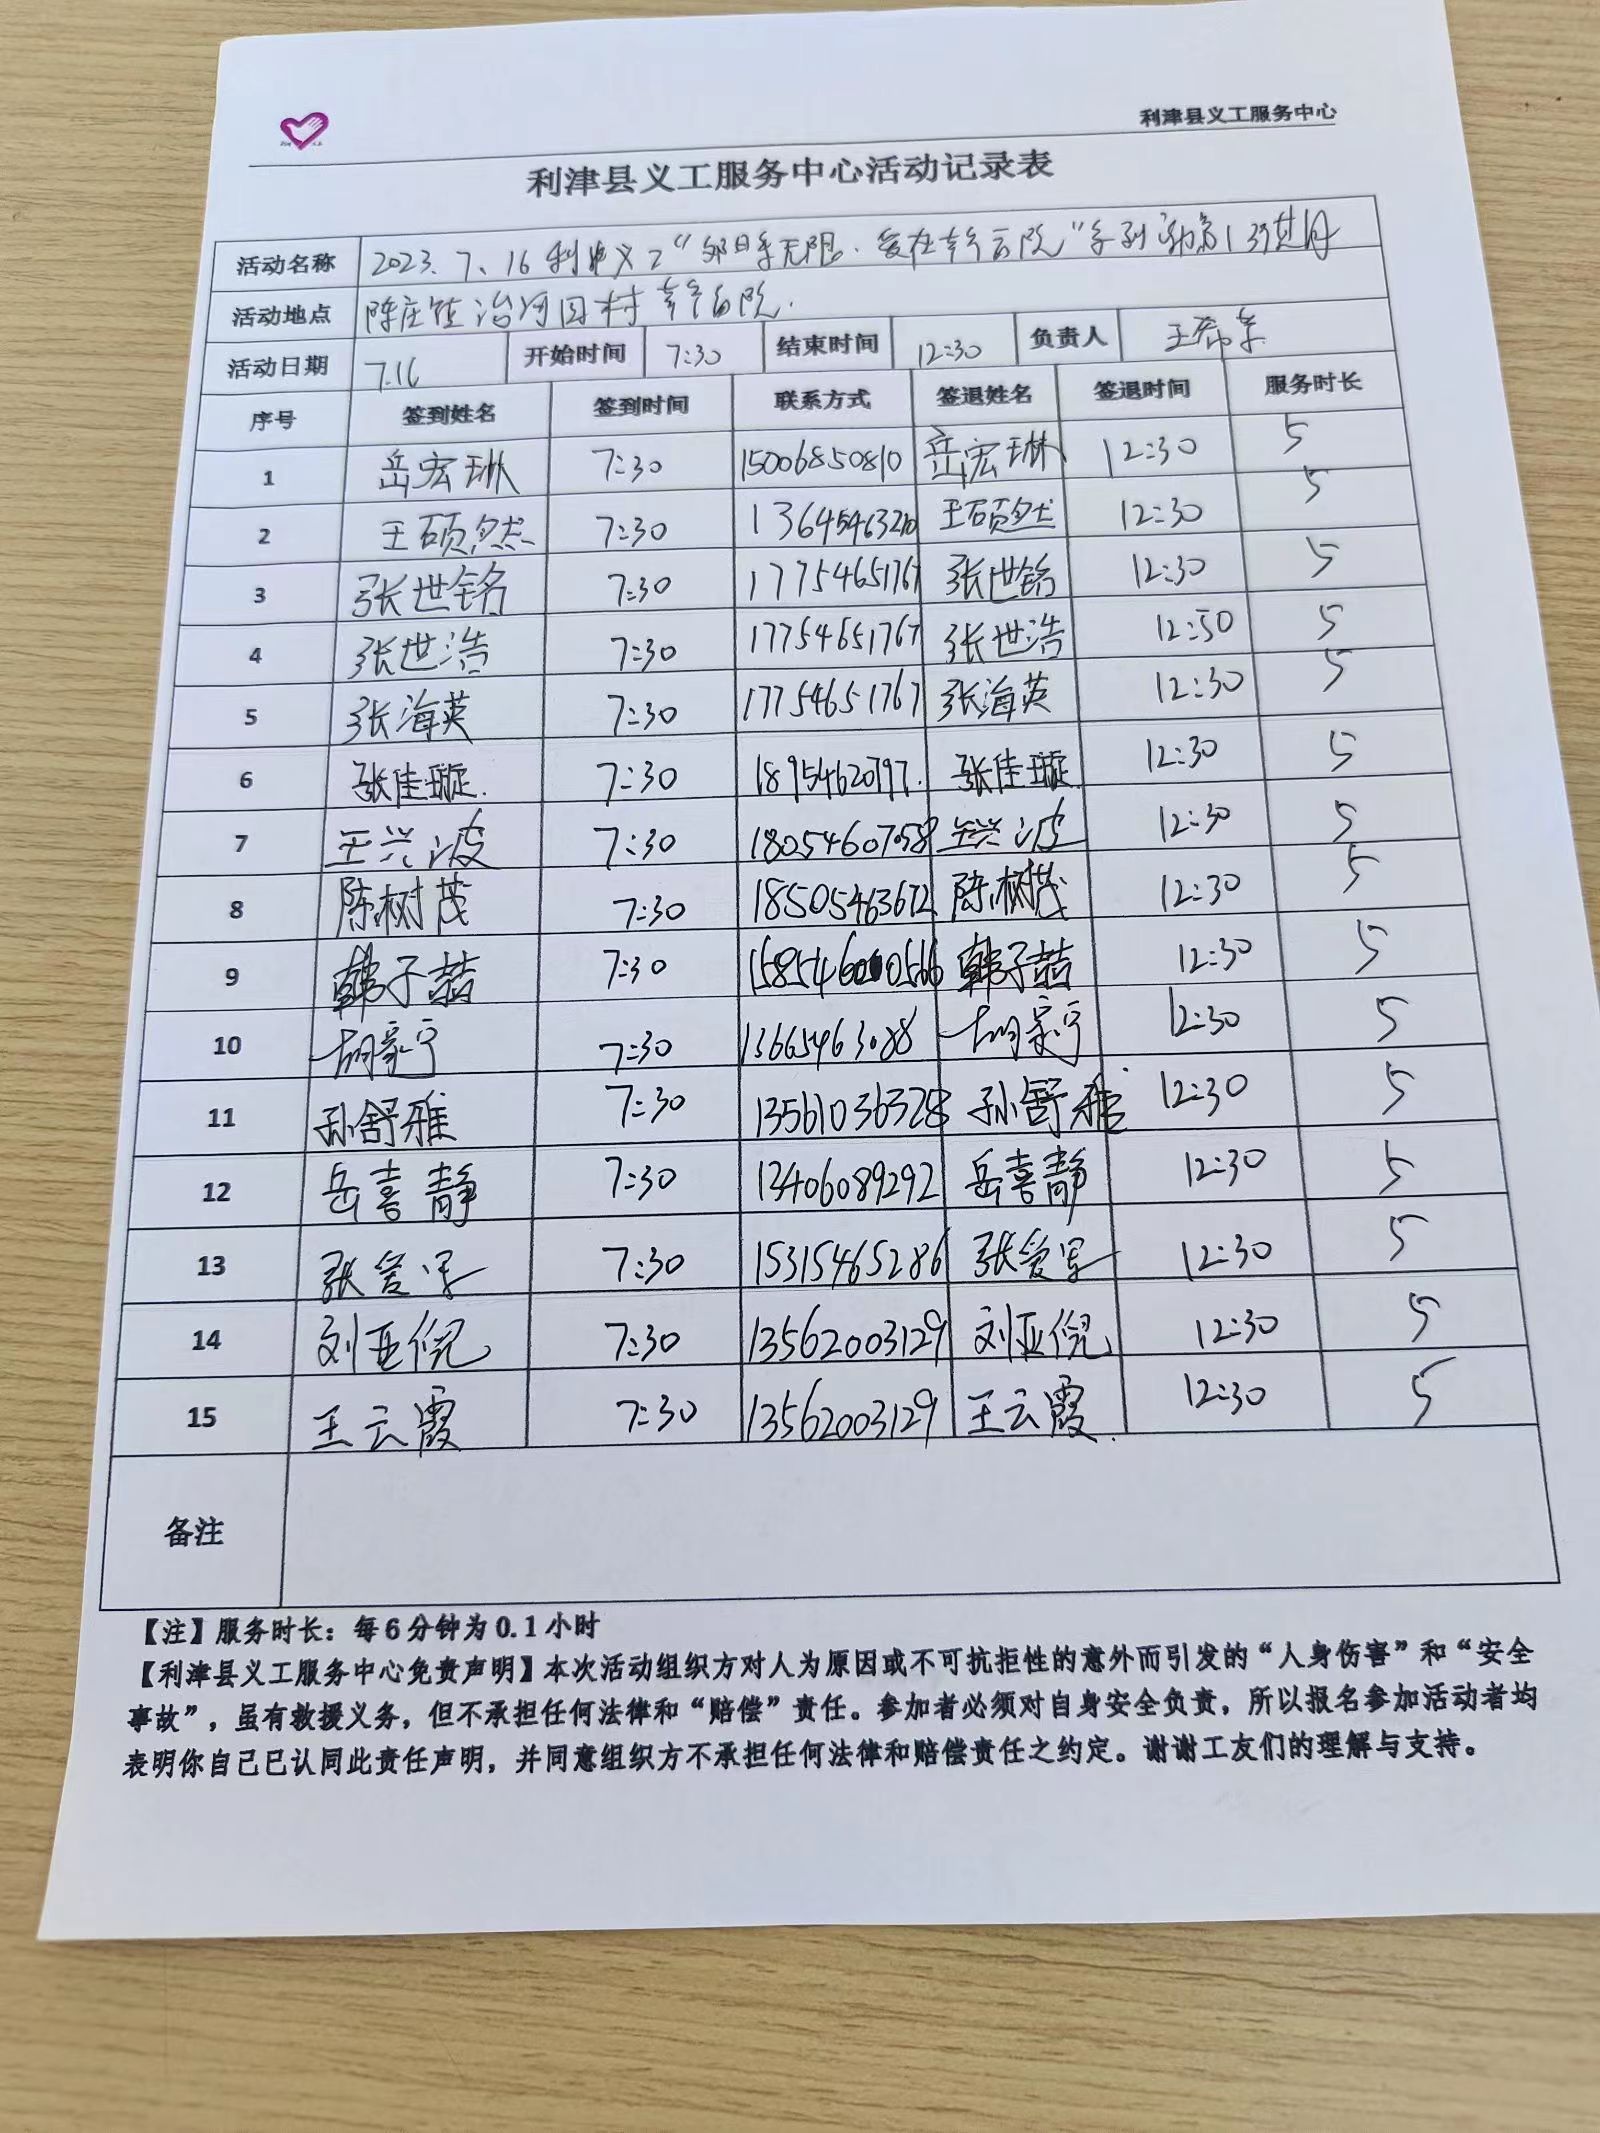 利津县义工服务中心
利津县义工服务中心活动记录表
活动名称 2023.7.16利津义工“夕阳无限·爱在幸福院”系列活动第
活动地点 陈庄镇 村幸福院.
活动日期 7.16 开始时间 7:30 结束时间 12:30 负责人 王希军
序号 签到姓名 签到时间 联系方式 签退姓名 签退时间 服务时长
1 岳宏琳 7:30 15006850810 岳宏琳 12:30 5
2 王硕然 7:30 13645463210 王硕然 12:30 5
3 张世铭 7:30 17754651767 张世铭 12:30 5
4 张世浩 7:30 17754651767 张世浩 12:50 5
5 张海英 7:30 17754651767 张海英 12:30 5
6 张佳璇. 7:30 18954620797. 张佳璇 12:30 5
7 王兴波 7:30 18054607058 王兴波 12:30 5
8 陈树茂 7:30 18505463672 陈树茂 12:30 5
9 韩子喆 7:30 韩子喆 12:30 5
10 胡家宁 7:30 13665463088 胡家宁 12:30 5
11 孙舒雅 7:30 13561036328 孙舒雅 12:30 5
12 岳喜静 7:30 13406089292 岳喜静 12:30 5
13 张爱军 7:30 15315465286 张爱军 12:30 5
14 刘亚倪 7:30 13562003129 刘亚倪 12:30 5
15 王云霞 7:30 13562003129 王云霞. 12:30 5
备注
【注】服务时长：每6分钟为0.1小时
【利津县义工服务中心免责声明】本次活动组织方对人为原因或不可抗拒性的意外而引发的“人身伤害”和“安全
事故”，虽有救援义务，但不承担任何法律和“赔偿”责任。参加者必须对自身安全负责，所以报名参加活动者均
表明你自己已认同此责任声明，并同意组织方不承担任何法律和赔偿责任之约定。谢谢工友们的理解与支持。